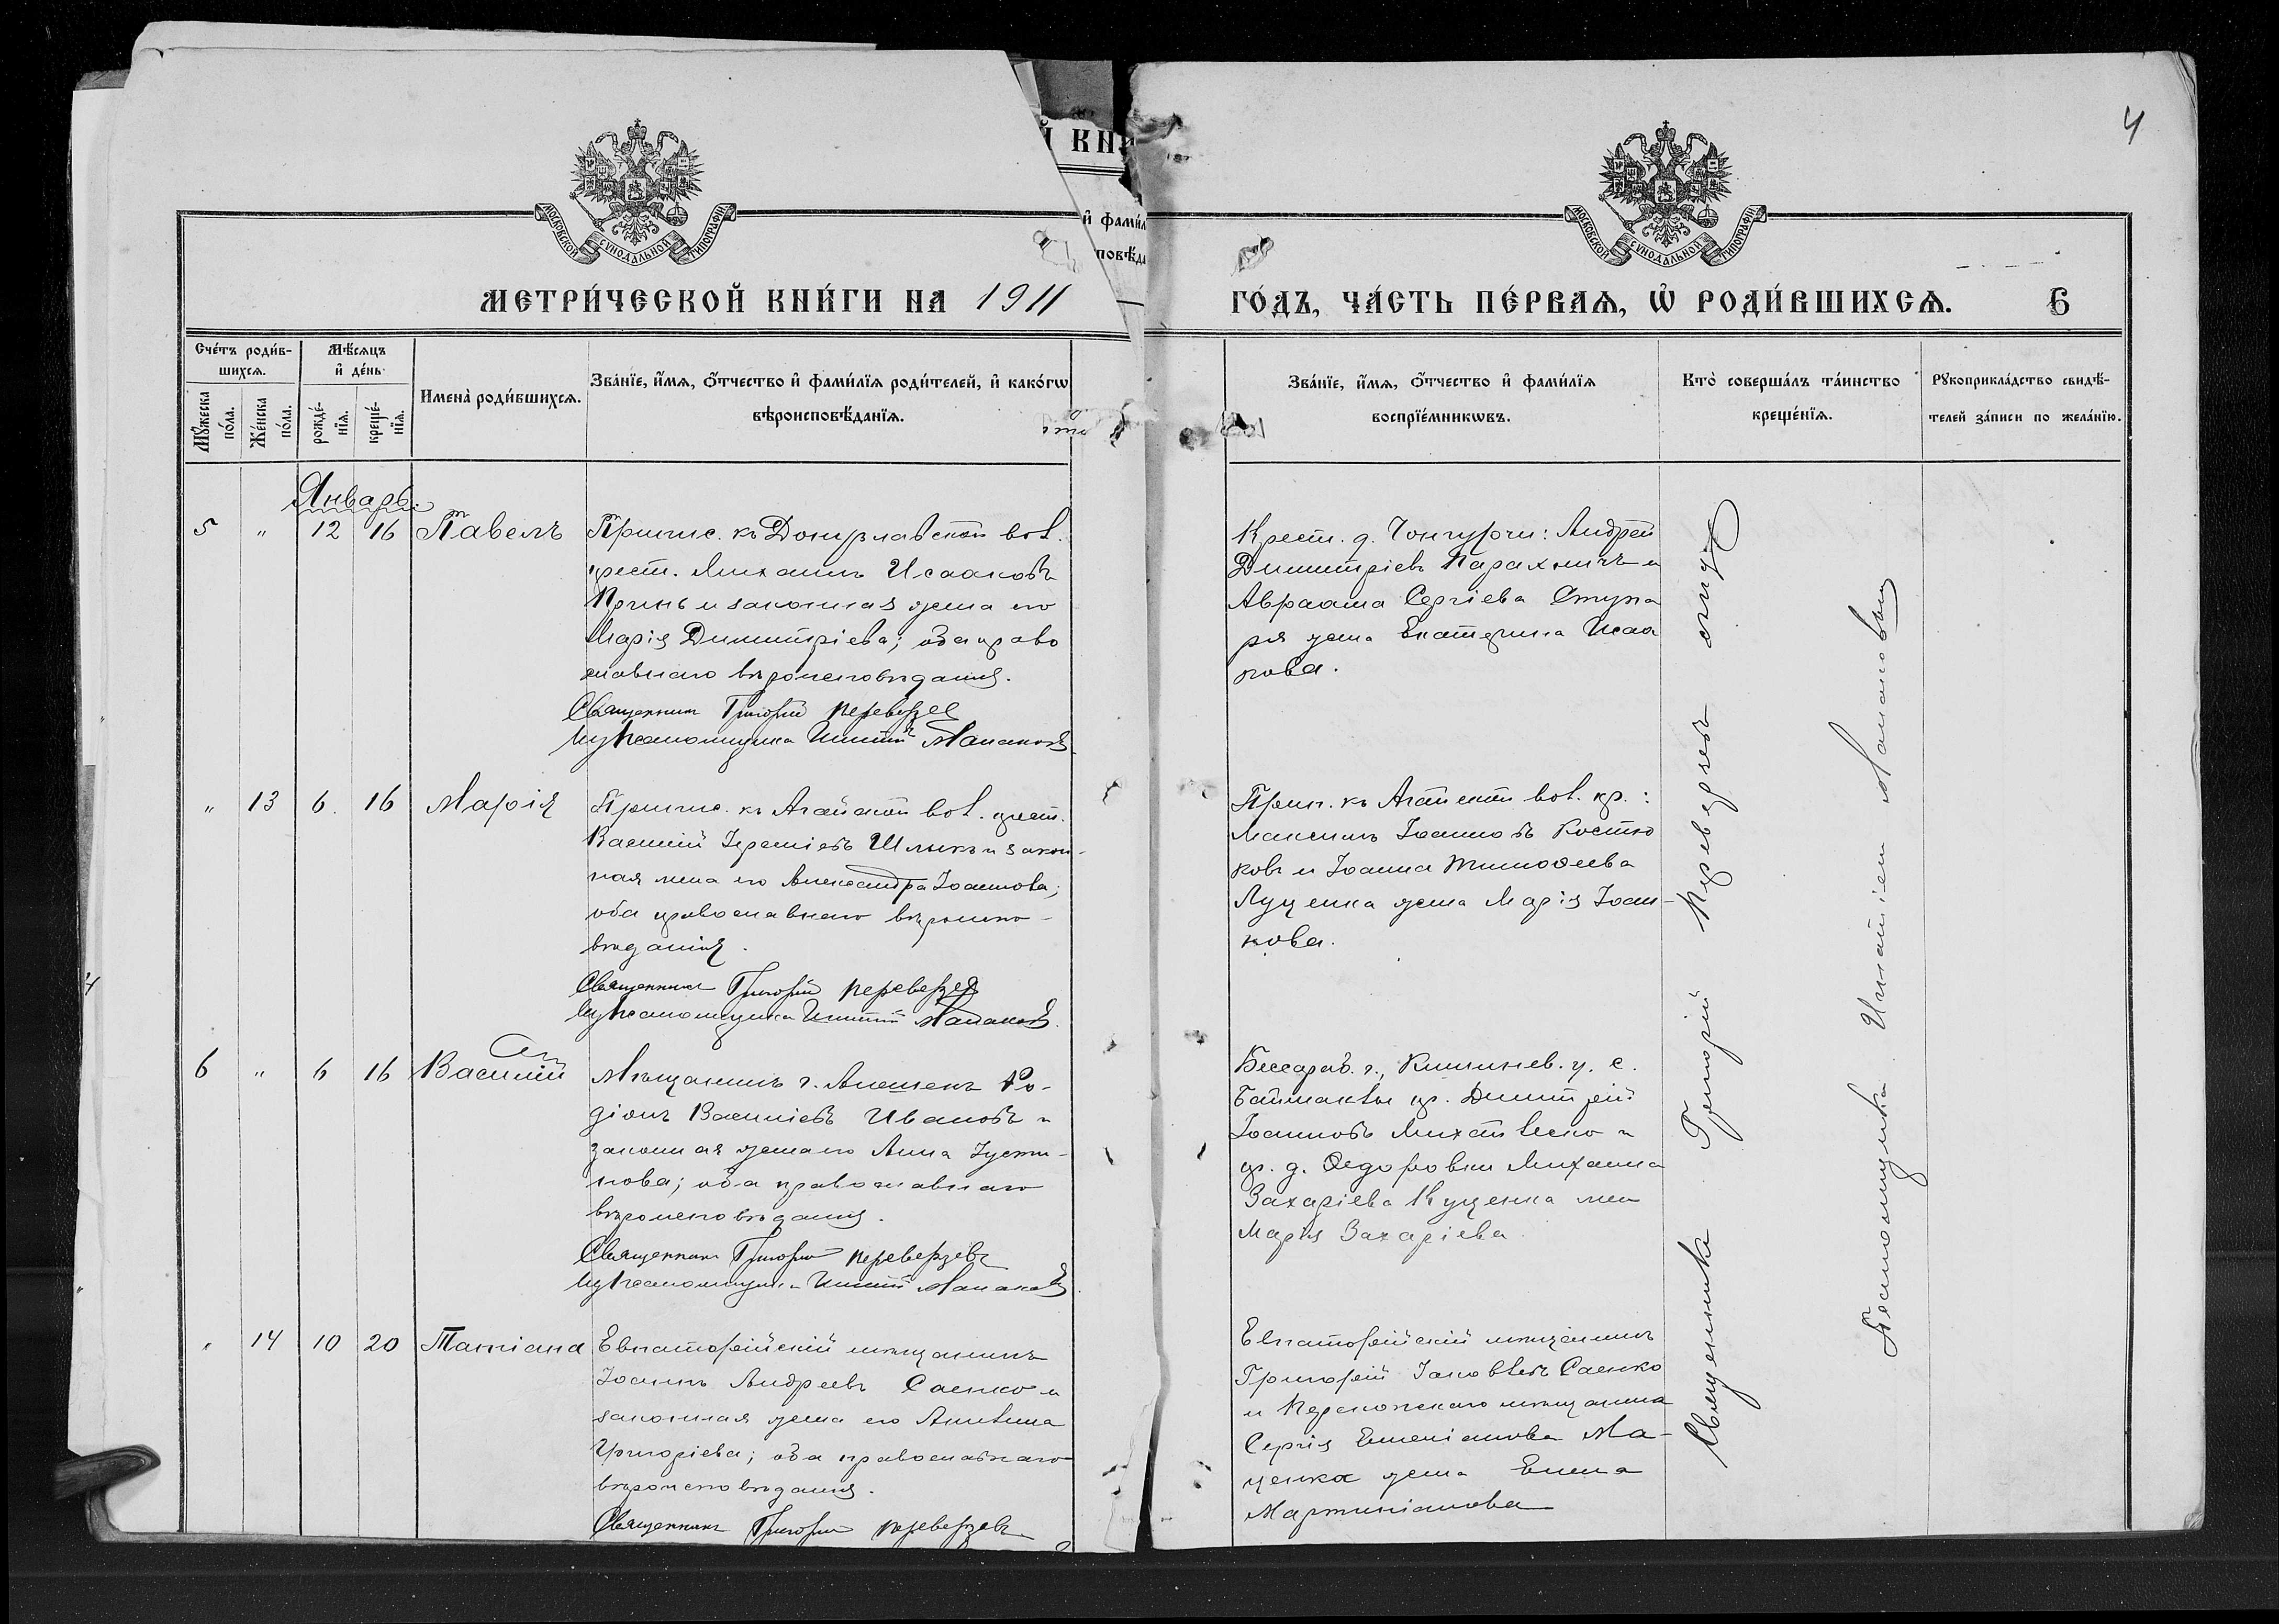 4
МОСКОВСКОЙ СѴНОДАЛЬНОЙ ТИПОГРАФІИ
МОСКОВСКОЙ СѴНОДАЛЬНОЙ ТИПОГРАФІИ
МЕТРИ́ЧЕСКОЙ КНИ́ГИ НА 1911
ГО́ДЪ, ЧА́СТЬ ПЕ́РВАѦ, Ѡ҆ РОДИ́ВШИХСѦ. 6
Сче́тъ роди́в-
шихсѧ.
Мꙋ́жеска по́ла.
Же́нска по́ла.
Мѣ́сѧцъ
и҆ де́нь
рожде́-
нїѧ.
креще́-
нїѧ.
Имена̀ роди́вшихсѧ.
Зва́нїе, и҆́мѧ, ѻ҆́тчество и҆ фами́лїѧ роди́телей, и҆ како́гѡ
вѣроисповѣ́данїѧ.
Зва́нїе, и҆́мѧ, ѻ҆́тчество и҆ фами́лїѧ
воспрїе́мникѡвъ.
Кто̀ соверша́лъ та́инство
креще́нїѧ.
Рꙋкоприкла́дство свидѣ́-
телей за́писи по жела́нїю.
Январь.
5 " 12 16 Павелъ
Припис. къ Донузлавской вол.
крест. Михаилъ Исааковъ
и законная жена его
Марія Димитріева; оба право
славнаго вѣроисповѣданія.
Священникъ Григорій Переверзев
Псаломщикъ Игнатій
Крест. д. Чонгурчи: Андрей
Димитріевъ и
Авраама Сергіева Ступа
ря жена Екатерина Исаа
кова.
" 13 6 16 Марія
Припис. къ Агайской вол. крест.
Василій Іереміевъ Шлыкъ и закон-
ная жена его Александра Іоаннова;
оба православнаго вѣроиспо-
вѣданія.
Священникъ Григорій Переверзев
Псаломщикъ Игнатій
Прип. къ Агайской вол. кр.:
Максимъ Іоанновъ Костю
ковъ и Іоанна Тимоѳеева
Луценка жена Марія Іоан-
нова.
6 " 6 16 Василій
Мѣщанинъ г. Алешекъ Ро-
діонъ Василіевъ Ивановъ и
законная жена его Анна Іусти-
нова; оба православнаго
вѣроисповѣданія.
Священникъ Григорій Переверзевъ
Псаломщикъ Игнатій
Бессараб. г., Кишинев. у. с.
кр. Димитрій
Іоанновъ и
кр. д. Ѳедоровки Михаила
Захаріева Куценка жена
Марія Захаріева
" 14 10 20 Татіана
Евпаторійскій мѣщанинъ
Іоаннъ Андреевъ Саенко и
законная жена его
Григоріева; оба православнаго
вѣроисповѣданія.
Священникъ Григорій Переверзевъ
Евпаторійскій мѣщанинъ
Григорій Іаковлевъ Саенко
и Перекопскаго мѣщанина
Сергія Ма-
ценка жена Елена
Мартиніанова
Священникъ Григорій Переверзевъ
Псаломщикъ Игнатіем